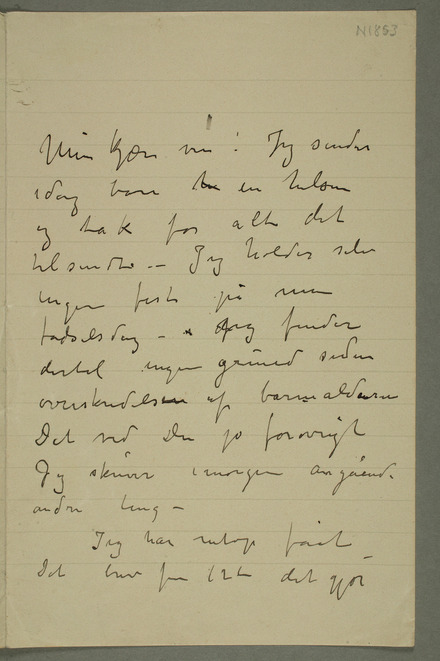 N1853
Min kjære ven! Jeg sender
idag bare en hilsen
og tak for alt det
tilsendte – Jeg holder selv
ingen fest på min
fødselsdag – Jeg finder
dertil ingen grund siden
overskridelsen af barnealderen
Det ved Du jo forøvrigt
Jeg skriver imorgen angående
andre ting –
Jeg har netop fåt
Dit brev det gjør